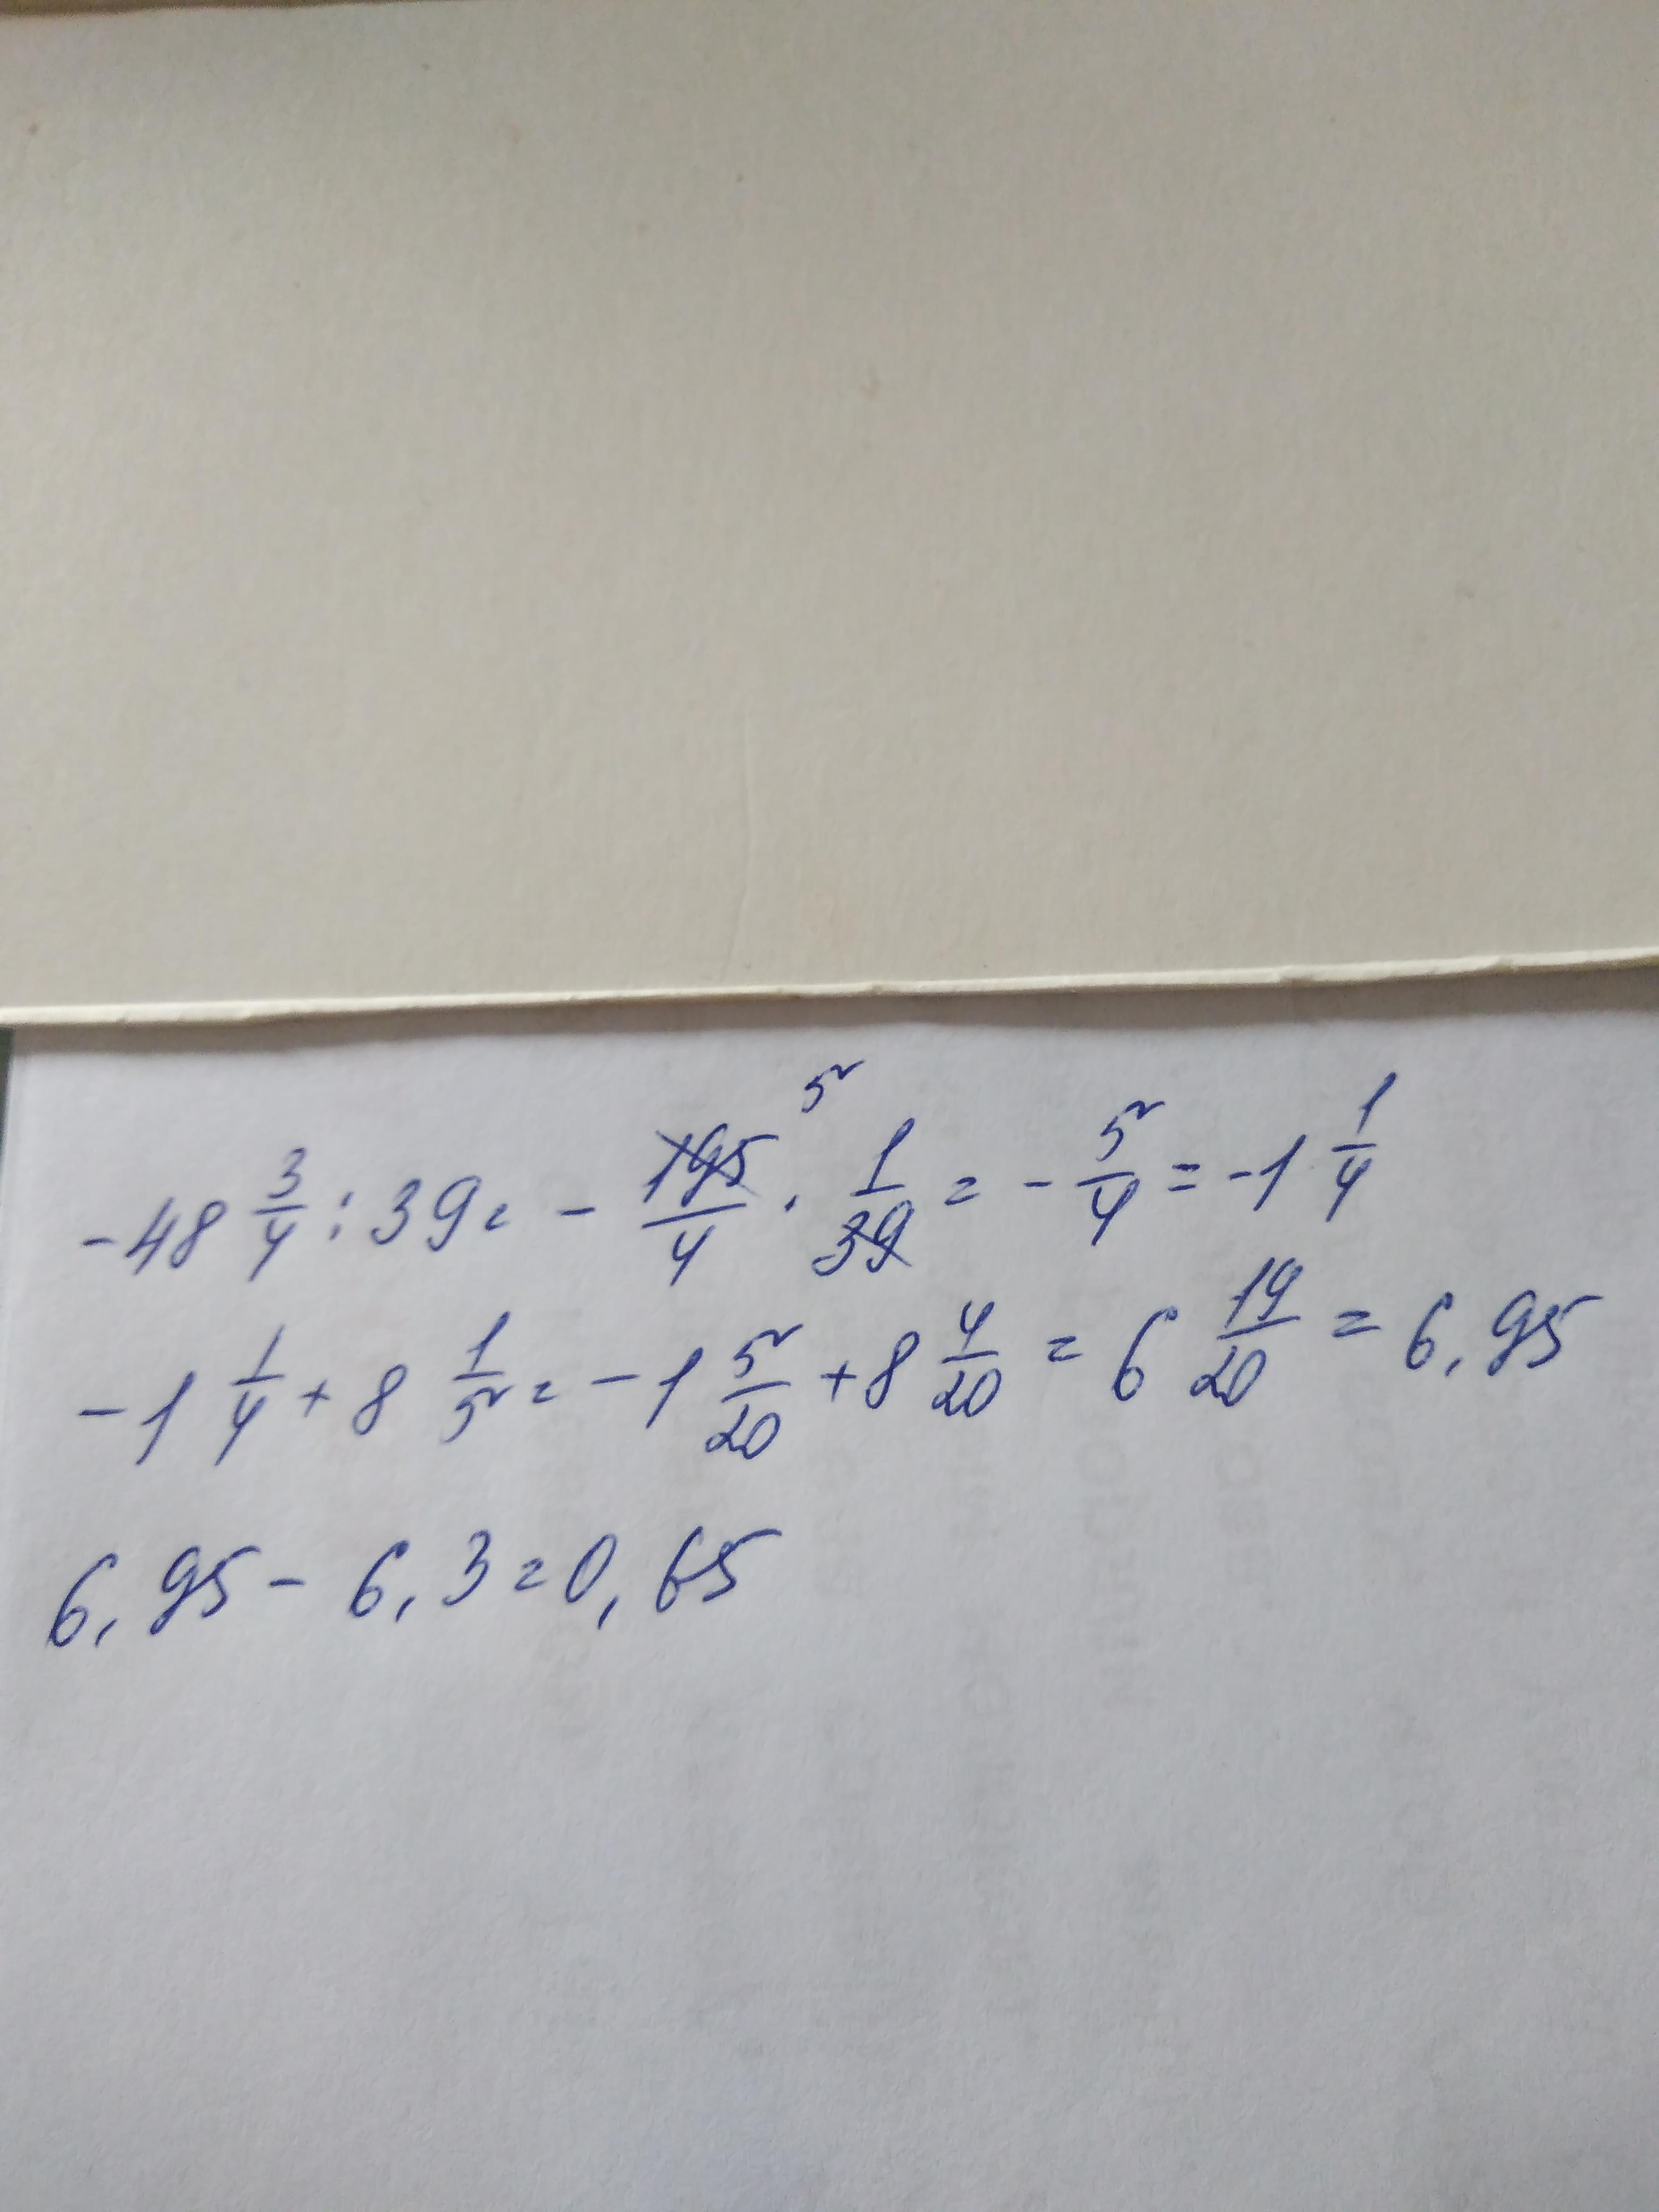 -48 3/4 : 39 = - 195/4 5 · 1/39 = - 5/4 = -1 1/4
-1 1/4 + 8 1/5 = -1 5/20 + 8 4/20 = 6 19/20 = 6,95
6,95 - 6,3 = 0,65